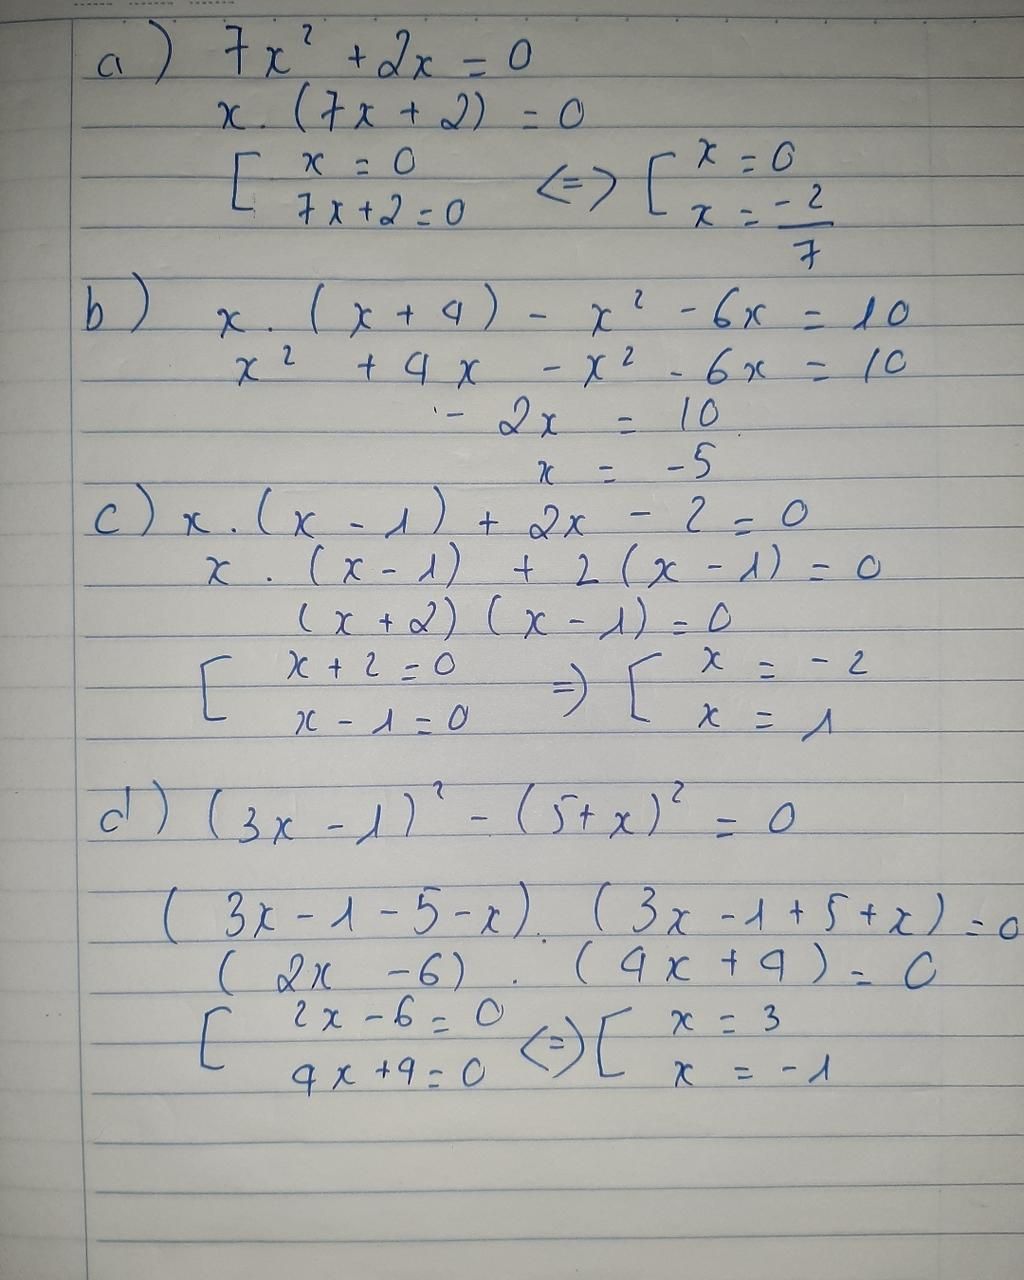 a) 7x² + 2x = 0
x. (7x + 2) = 0
[ x = 0 <=> [ x = 0
7x + 2 = 0 x = -2/7
b) x. (x + 4) - x² - 6x = 10
x² + 4x - x² - 6x = 10
- 2x = 10
x = -5
c) x. (x - 1) + 2x - 2 = 0
x. (x - 1) + 2(x - 1) = 0
(x + 2) (x - 1) = 0
[ x + 2 = 0 => [ x = -2
x - 1 = 0 x = 1
d) (3x - 1)² - (5 + x)² = 0
(3x - 1 - 5 - x). (3x - 1 + 5 + x) = 0
(2x - 6) . (4x + 4) = 0
[ 2x - 6 = 0 <=> [ x = 3
4x + 4 = 0 x = -1